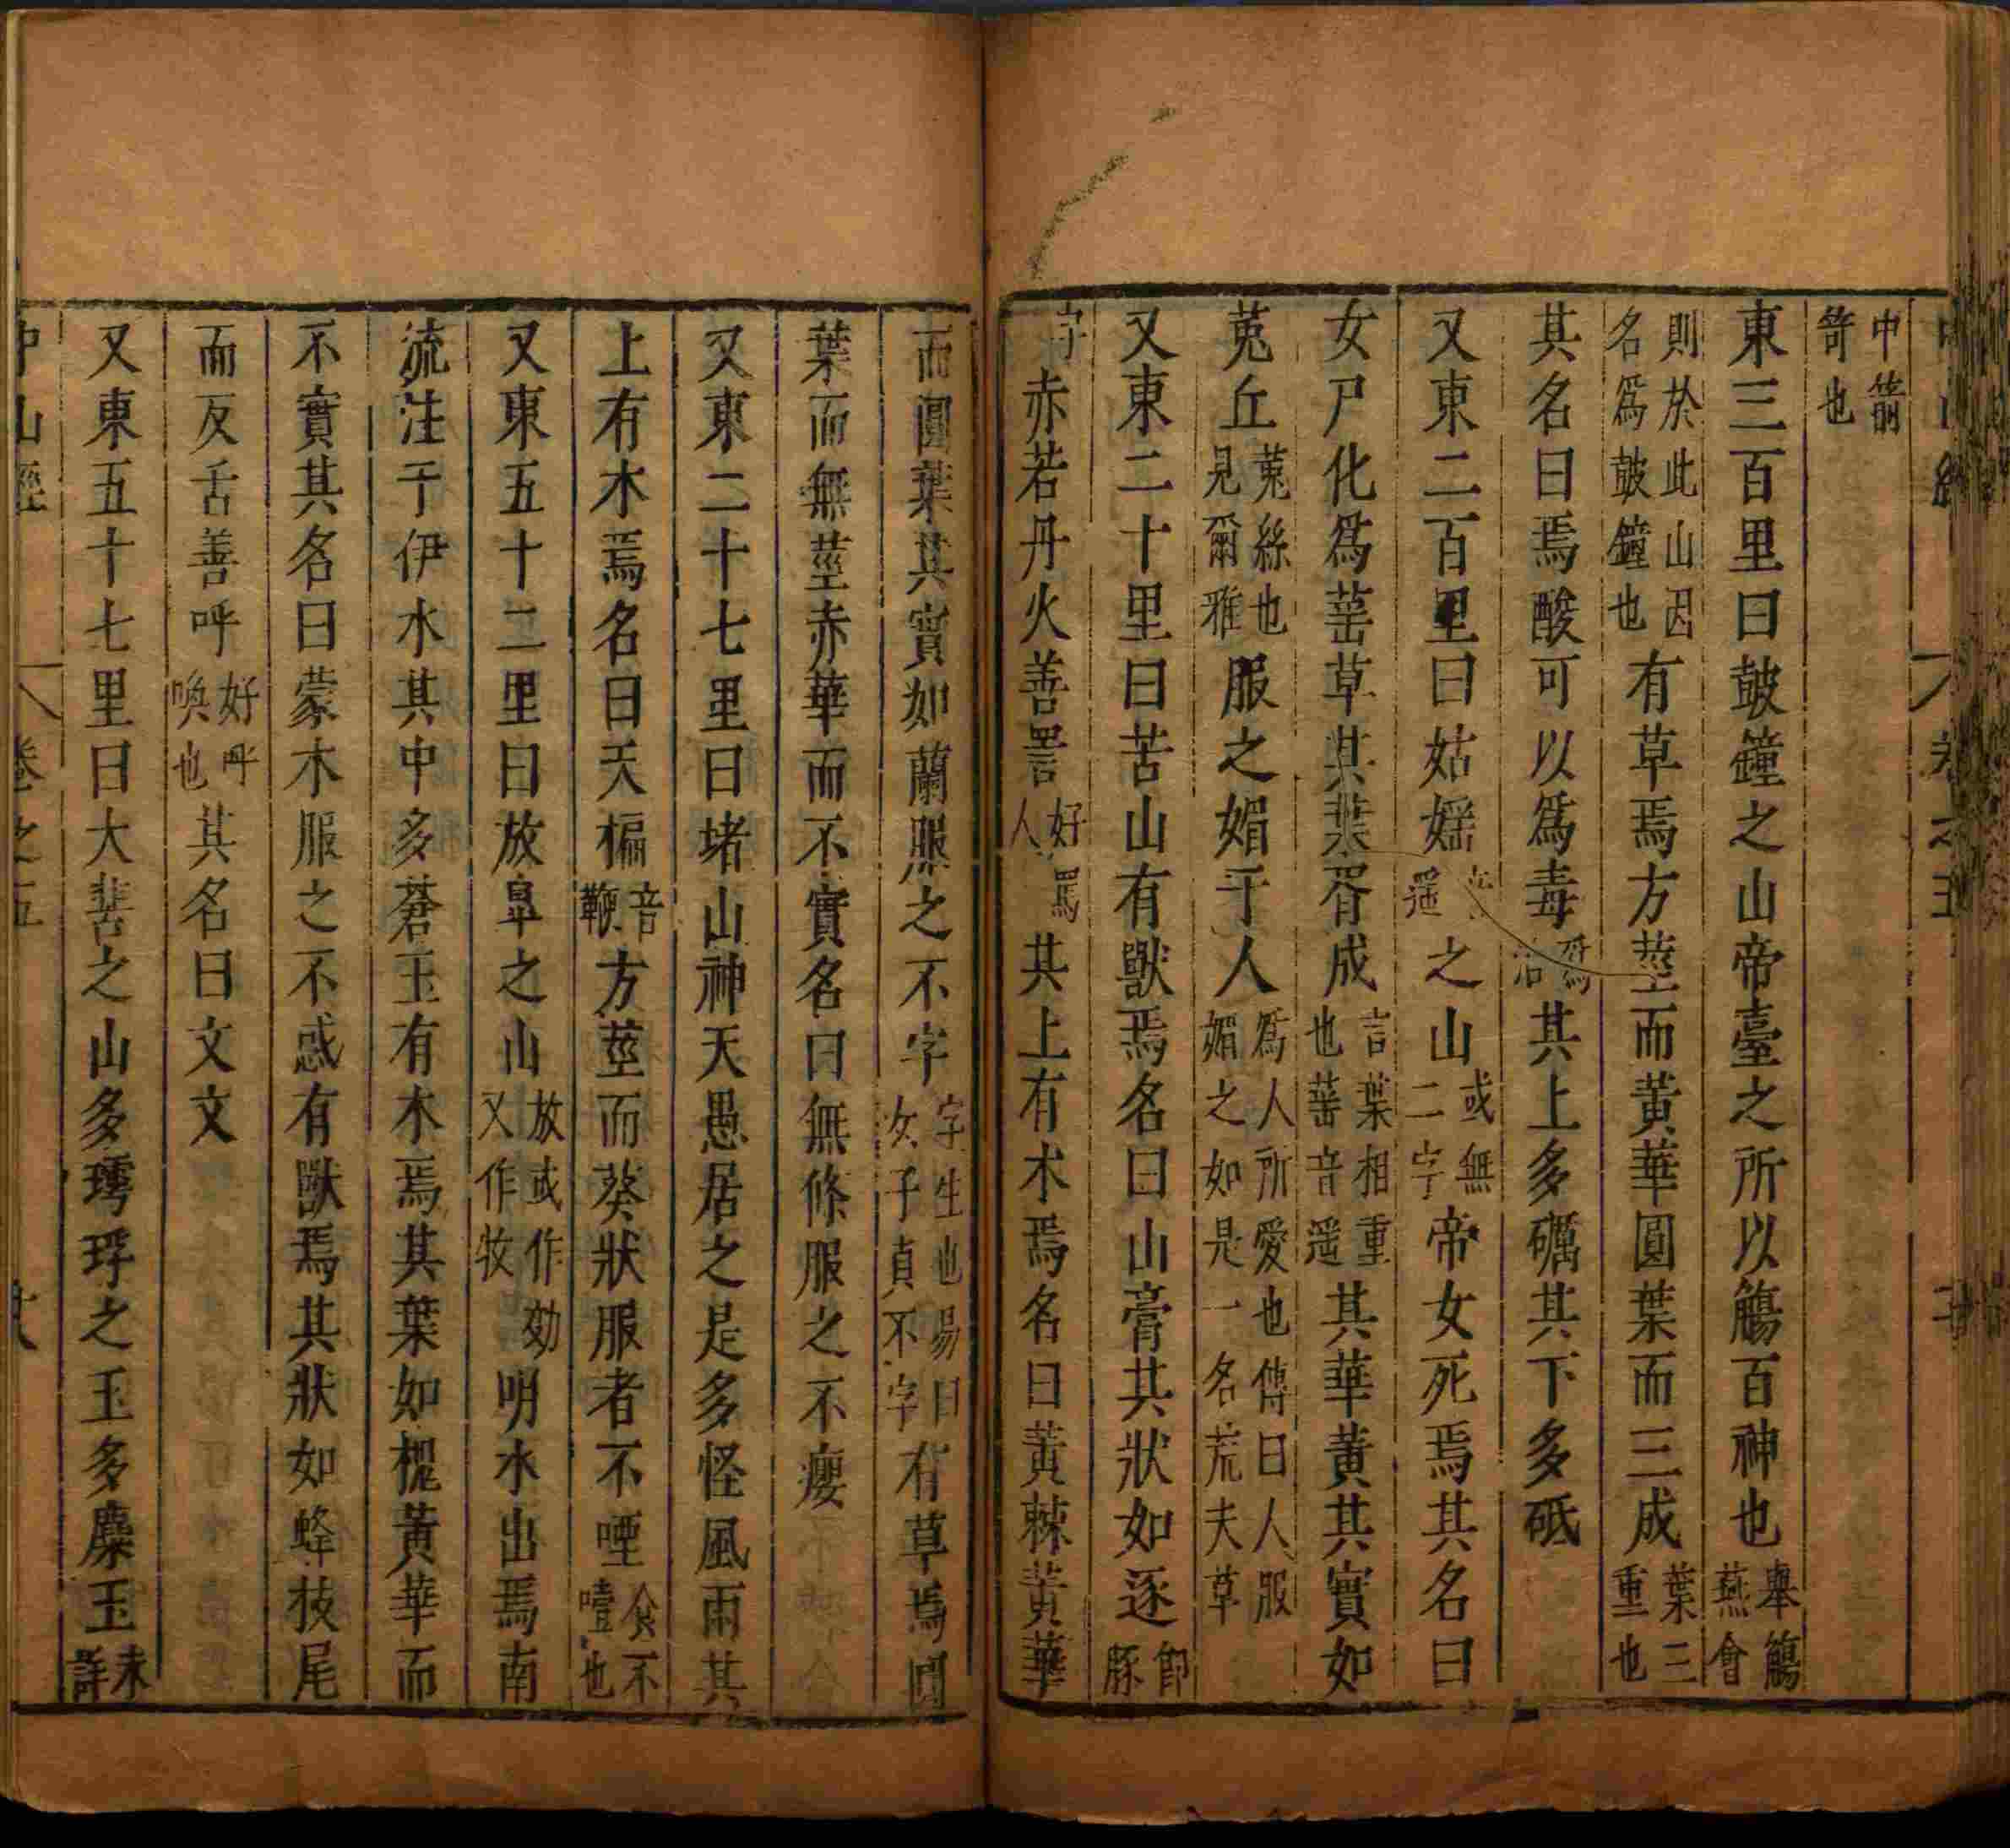 中箭
笴也
東三百里曰皷鐘之山帝臺之所以觴百神也舉觴燕會
則於此山因名爲皷鐘也有草焉方莖而黃華圓葉而三成葉三重也
其名曰焉酸可以爲毒爲治其上多礪其下多砥
又東二百里曰姑媱遥之山或無二字帝女死焉其名曰
女尸化爲䔄草其葉胥成言葉相重也䔄音遥其華黃其實如
菟丘菟絲也見爾雅服之媚于人爲人所愛也傳曰人服媚之如是一名荒夫草
又東二十里曰苦山有獸焉名曰山膏其狀如逐即豚
字赤若丹火善詈好罵人其上有木焉名曰黃棘黃華
而圓葉其實如蘭服之不字字生也易曰女子貞不字有草焉圓
葉而無莖赤華而不實名曰無條服之不癭
又東二十七里曰堵山神天愚居之是多怪風雨其
上有木焉名曰天楄音鞭方莖而葵狀服者不㗃食不噎也
又東五十二里曰放皐之山放或作効又作牧明水出焉南
流注于伊水其中多蒼玉有木焉其葉如槐黃華而
不實其名曰蒙木服之不惑有獸焉其狀如蜂枝尾
而反舌善呼好呼喚也其名曰文文
又東五十七里曰大䓤之山多㻬琈之玉多麋玉未詳
中山經 卷之五 廿八